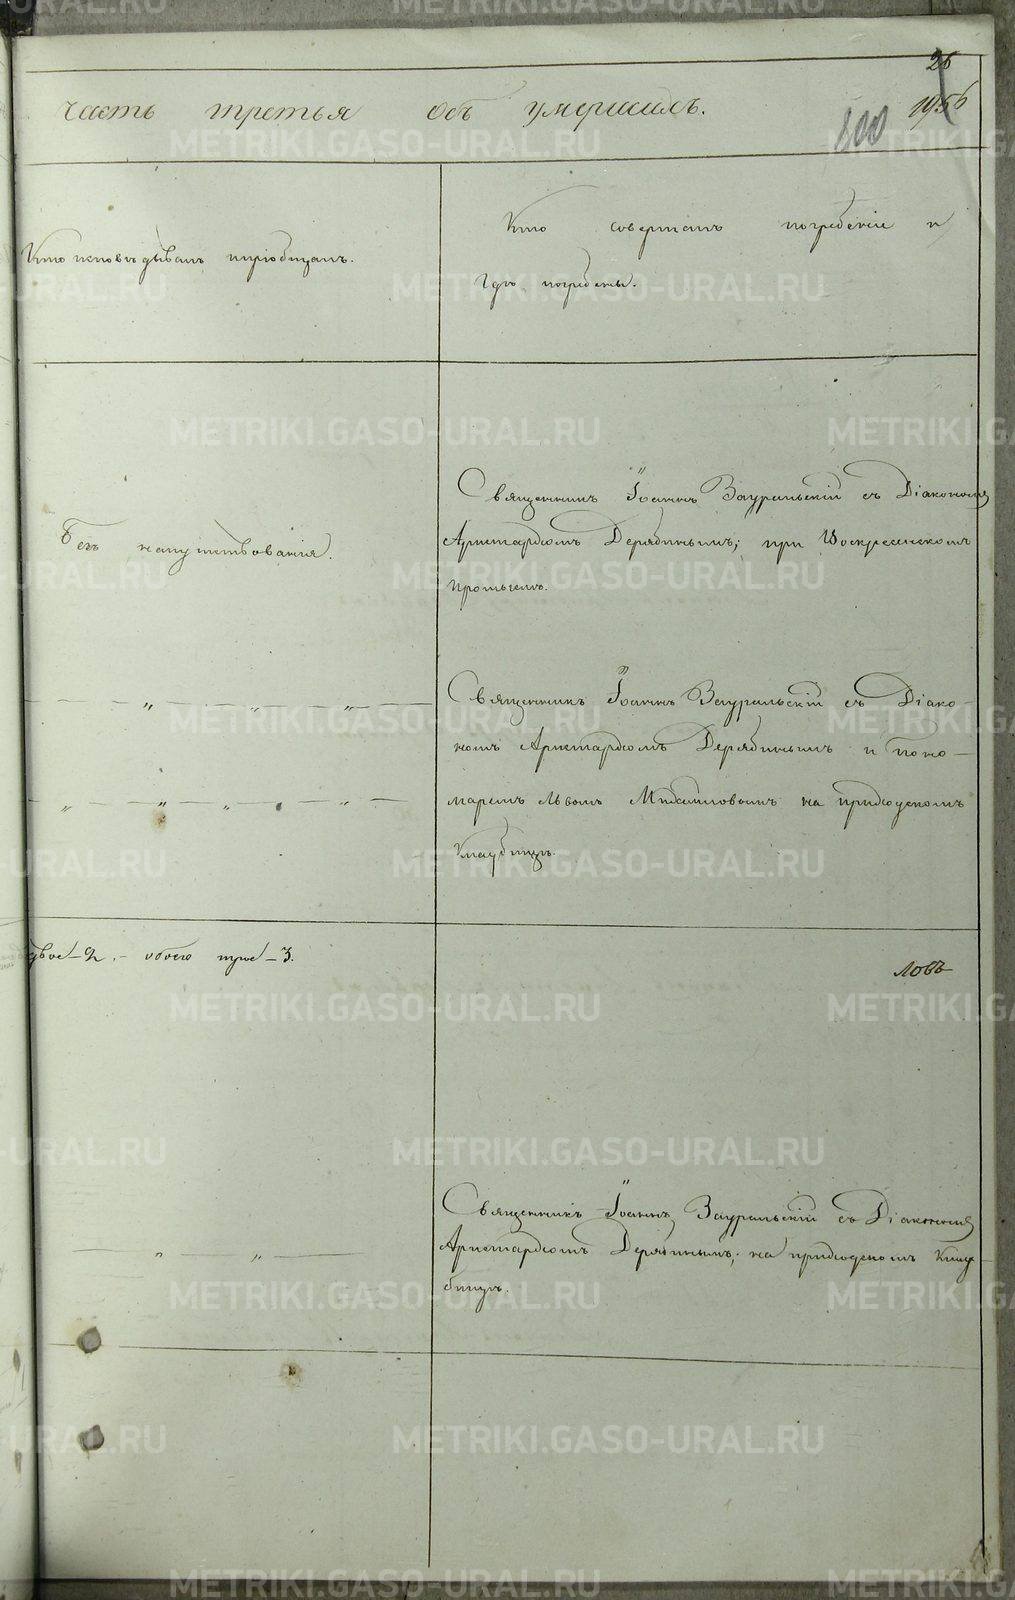 26
часть третья объ умершихъ.
100
1956
Кто исповѣдывалъ и пріобщалъ.
Кто совершалъ погребеніе и
гдѣ погребены.
Священникъ Іоаннъ Зауральскій съ Діакономъ
Безъ напутствованія.
Аристархомъ Дерябинымъ; при Воскресенскомъ
промыслѣ.
— „ — „ — „ —
Священникъ Іоаннъ Зауральскій съ Діако-
номъ Аристархомъ Дерябинымъ и поно-
— „ — „ — „ — „ —
маремъ Львомъ Михайловымъ на приходскомъ
кладбищѣ.
двое - 2. - обоего трое - 3.
ловъ
Священникъ Іоаннъ Зауральскій съ Діакономъ
— „ „ —
Аристархомъ Дерябинымъ; на приходскомъ клад-
бищѣ.
METRIKI.GASO-URAL.RU